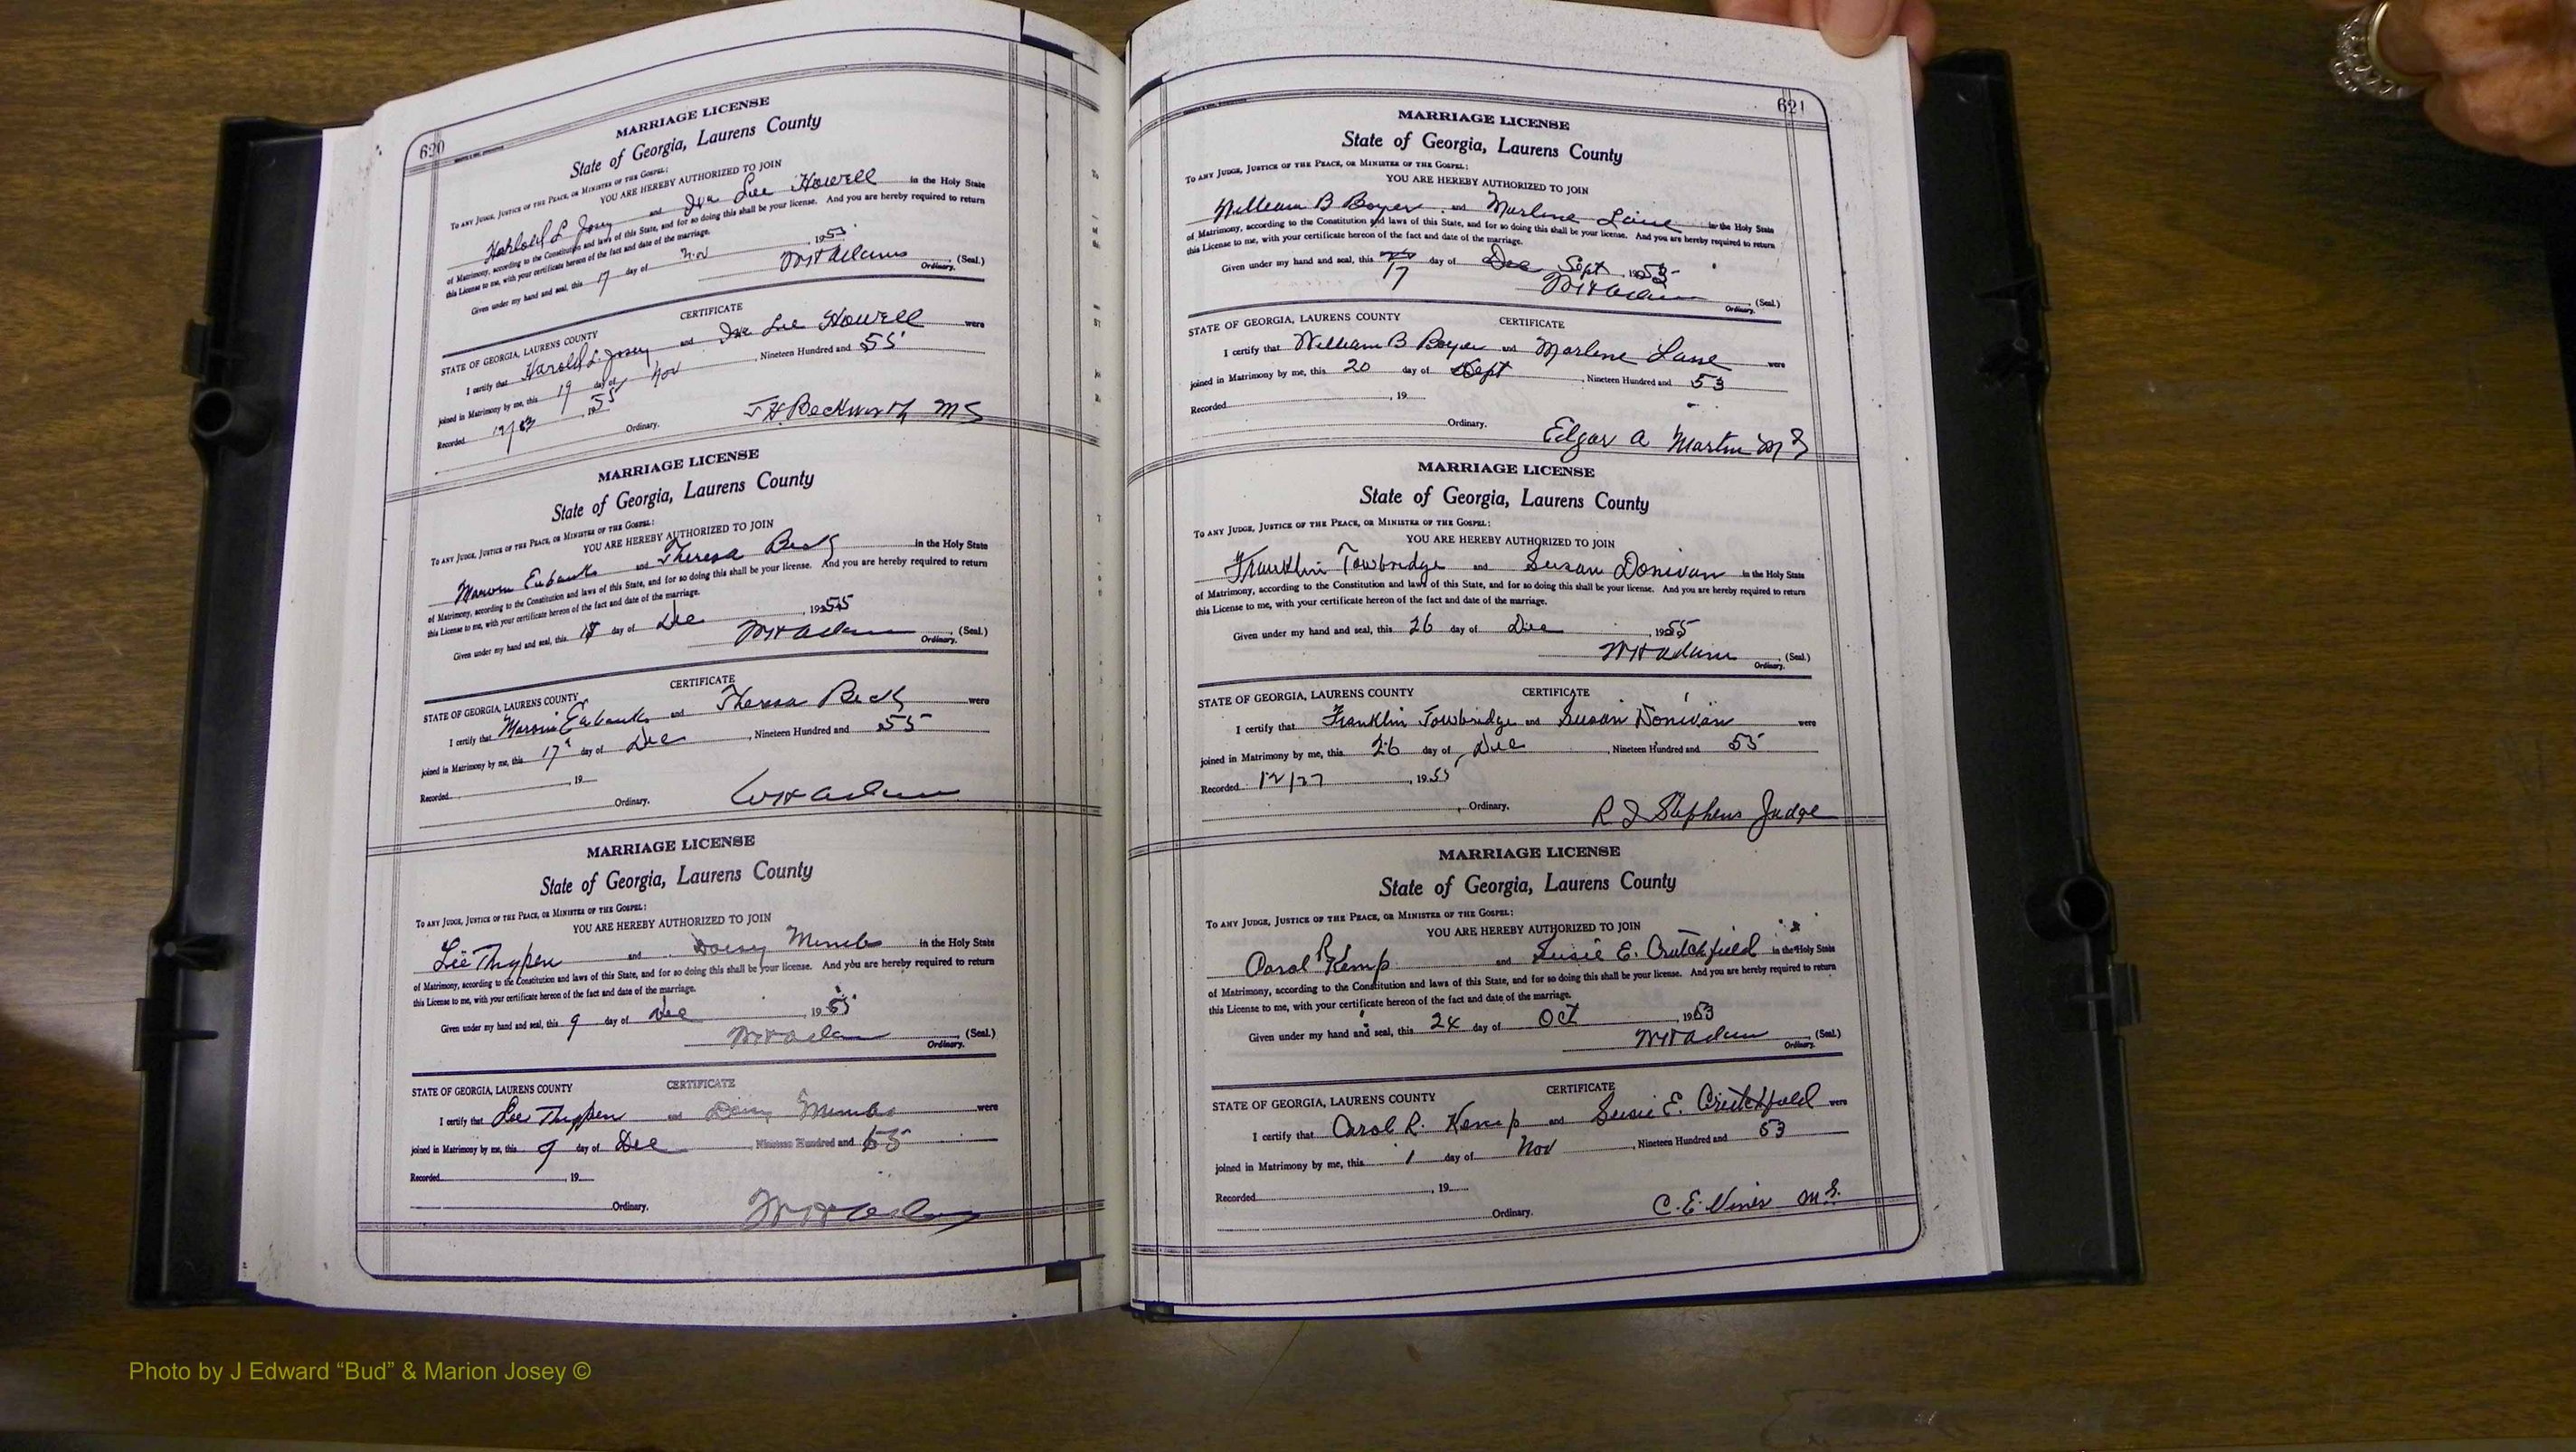 620
MARRIAGE LICENSE
State of Georgia, Laurens County
TO ANY JUDGE, JUSTICE OF THE PEACE, OR MINISTER OF THE GOSPEL:
YOU ARE HEREBY AUTHORIZED TO JOIN
Harold L Josey and Iva Lee Howell in the Holy State
of Matrimony, according to the Constitution and laws of this State, and for so doing this shall be your license. And you are hereby required to return
this License to me, with your certificate hereon of the fact and date of the marriage.
Given under my hand and seal, this 17 day of Nov, 195
W H Adams (Seal.)
Ordinary.
CERTIFICATE
STATE OF GEORGIA, LAURENS COUNTY
I certify that Harold L. Josey and Iva Lee Howell were
joined in Matrimony by me, this 19 day of Nov, Nineteen Hundred and 55
Recorded 1955
Ordinary.
J.H. Beckworth MG
MARRIAGE LICENSE
State of Georgia, Laurens County
TO ANY JUDGE, JUSTICE OF THE PEACE, OR MINISTER OF THE GOSPEL:
YOU ARE HEREBY AUTHORIZED TO JOIN
Marvin Eubanks and Theresa Beck in the Holy State
of Matrimony, according to the Constitution and laws of this State, and for so doing this shall be your license. And you are hereby required to return
this License to me, with your certificate hereon of the fact and date of the marriage.
Given under my hand and seal, this day of Dec, 1955
W H Adams (Seal.)
Ordinary.
CERTIFICATE
STATE OF GEORGIA, LAURENS COUNTY
I certify that Marvin Eubanks and Theresa Beck were
joined in Matrimony by me, this 17 day of Dec, Nineteen Hundred and 55
Recorded, 19
Ordinary.
W H Adams
MARRIAGE LICENSE
State of Georgia, Laurens County
TO ANY JUDGE, JUSTICE OF THE PEACE, OR MINISTER OF THE GOSPEL:
YOU ARE HEREBY AUTHORIZED TO JOIN
Lee Thigpen and Daisy Mimbs in the Holy State
of Matrimony, according to the Constitution and laws of this State, and for so doing this shall be your license. And you are hereby required to return
this License to me, with your certificate hereon of the fact and date of the marriage.
Given under my hand and seal, this 9 day of Dec, 1955
W H Adams (Seal.)
Ordinary.
CERTIFICATE
STATE OF GEORGIA, LAURENS COUNTY
I certify that Lee Thigpen and Daisy Mimbs were
joined in Matrimony by me, this 9 day of Dec, Nineteen Hundred and 55
Recorded, 19
Ordinary.
W H Adams
621
MARRIAGE LICENSE
State of Georgia, Laurens County
TO ANY JUDGE, JUSTICE OF THE PEACE, OR MINISTER OF THE GOSPEL:
YOU ARE HEREBY AUTHORIZED TO JOIN
William B Boyer and Marlene Lane in the Holy State
of Matrimony, according to the Constitution and laws of this State, and for so doing this shall be your license. And you are hereby required to return
this License to me, with your certificate hereon of the fact and date of the marriage.
Given under my hand and seal, this 17 day of Dec Sept, 1953
W H Adams (Seal.)
Ordinary.
CERTIFICATE
STATE OF GEORGIA, LAURENS COUNTY
I certify that William B Boyer and Marlene Lane were
joined in Matrimony by me, this 20 day of Sept, Nineteen Hundred and 53
Recorded, 19
Ordinary.
Edgar A Martin MG
MARRIAGE LICENSE
State of Georgia, Laurens County
TO ANY JUDGE, JUSTICE OF THE PEACE, OR MINISTER OF THE GOSPEL:
YOU ARE HEREBY AUTHORIZED TO JOIN
Franklin Towbridge and Susan Donivan in the Holy State
of Matrimony, according to the Constitution and laws of this State, and for so doing this shall be your license. And you are hereby required to return
this License to me, with your certificate hereon of the fact and date of the marriage.
Given under my hand and seal, this 26 day of Dec, 1955
W H Adams (Seal.)
Ordinary.
CERTIFICATE
STATE OF GEORGIA, LAURENS COUNTY
I certify that Franklin Towbridge and Susan Donivan were
joined in Matrimony by me, this 26 day of Dec, Nineteen Hundred and 55
Recorded 12/27, 1955
Ordinary.
R I Stephens Judge
MARRIAGE LICENSE
State of Georgia, Laurens County
TO ANY JUDGE, JUSTICE OF THE PEACE, OR MINISTER OF THE GOSPEL:
YOU ARE HEREBY AUTHORIZED TO JOIN
Carol R Kemp and Susie E. Crutchfield in the Holy State
of Matrimony, according to the Constitution and laws of this State, and for so doing this shall be your license. And you are hereby required to return
this License to me, with your certificate hereon of the fact and date of the marriage.
Given under my hand and seal, this 24 day of Oct, 1953
W H Adams (Seal.)
Ordinary.
CERTIFICATE
STATE OF GEORGIA, LAURENS COUNTY
I certify that Carol R. Kemp and Susie E. Crutchfield were
joined in Matrimony by me, this 1 day of Nov, Nineteen Hundred and 53
Recorded, 19
Ordinary.
C. E. Viner MG.
Photo by J Edward “Bud” & Marion Josey ©